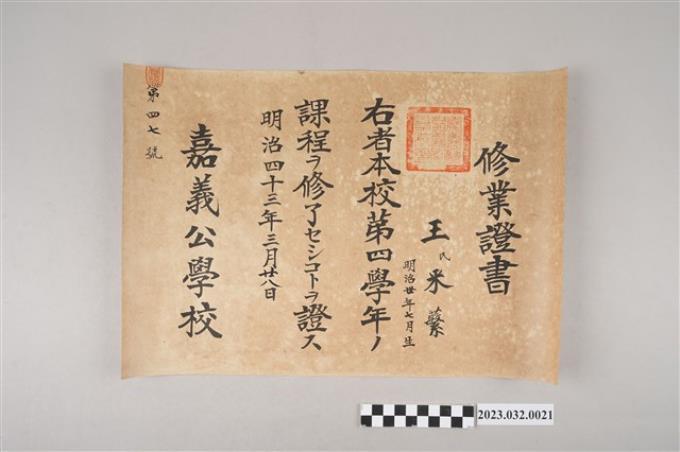 修業證書
王氏米蘩
明治卅年七月生
右者本校第四學年ノ
課程ヲ修了セシコトヲ證ス
明治四十三年三月廿八日
嘉義公學校
第四七號
2023.032.0021